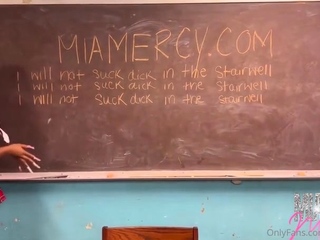 MIAMERCY.COM
I will not suck dick in the stairwell
I will not suck dick in the stairwell
I will not suck dick in the stairwell
OnlyFans.co